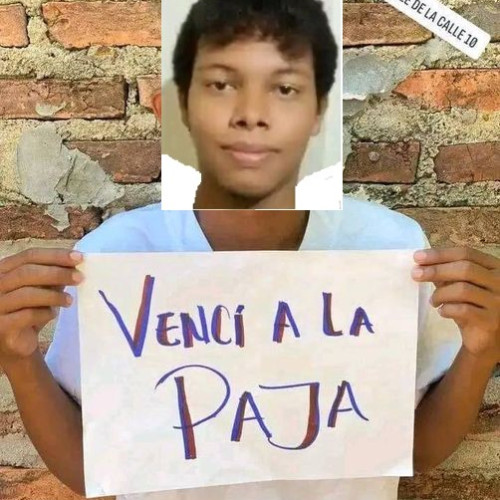 DE LA CALLE 10
VENCÍ A LA
PAJA